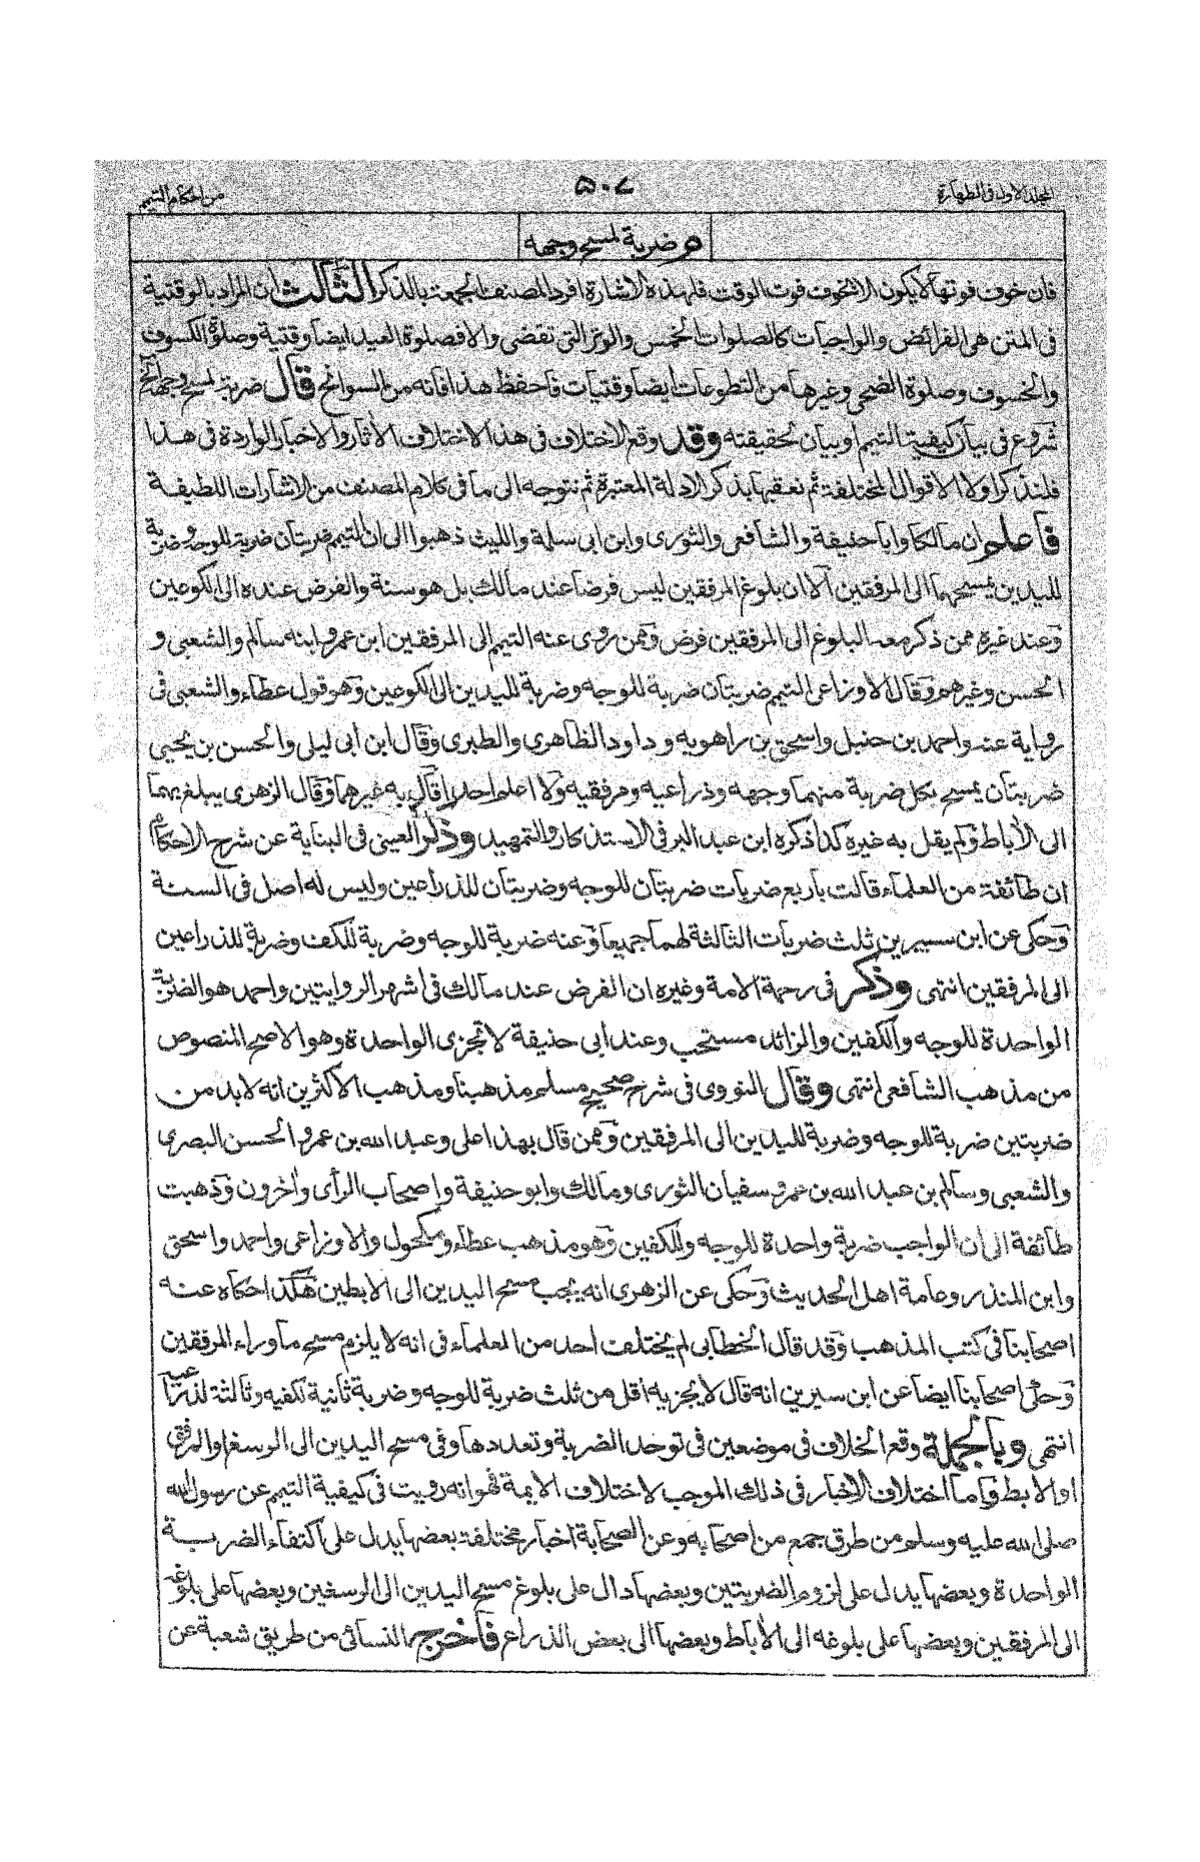 المجلد الاول فى الطهارة
٥٠٧
من احكام التيمم
م ضربة لمسح وجهه
فان خوف فوتها لا يكون الا بخوف فوت الوقت فلهذه الاشارة افرد المصنف الجمعة بالذكر الثالث ان المراد بالوقتية
فى المتن هى الفرائض والواجبات كالصلوات الخمس والوتر التى تقضى والا فصلوة العيد ايضا وقتية وصلوة الكسوف
والخسوف وصلوة الضحى وغيرها من التطوعات ايضا وقتيات فاحفظ هذا فانه من السوانح قال ضربة لمسح وجهه الخ
شروع فى بيان كيفية التيمم او بيان لحقيقته وقد وقع الاختلاف فى هذا الاختلاف الآثار والاخبار الواردة فى هذا
فلنذكر اولا الاقوال المختلفة ثم نعقبها بذكر الادلة المعتبرة ثم نتوجه الى ما فى كلام المصنف من الاشارات اللطيفة
فاعلم ان مالكا وابا حنيفة والشافعى والثورى وابن ابى سلمة والليث ذهبوا الى ان التيمم ضربتان ضربة للوجه وضربة
لليدين يمسحهما الى المرفقين الا ان بلوغ المرفقين ليس فرضا عند مالك بل هو سنة والفرض عنده الى الكوعين
وعند غيره ممن ذكر معه البلوغ الى المرفقين فرض وممن روى عنه التيمم الى المرفقين ابن عمر وابنه سالم والشعبى و
الحسن وغيرهم وقال الاوزاعى التيمم ضربتان ضربة للوجه وضربة لليدين الى الكوعين وهو قول عطاء والشعبى فى
رواية عنه واحمد بن حنبل واسحق بن راهويه وداود الظاهرى والطبرى وقال ابن ابى ليلى والحسن بن يحيى
ضربتان يمسح بكل ضربة منهما وجهه وذراعيه ومرفقيه ولا اعلم احدا قال به غيرهما وقال الزهرى يبلغ بهما
الى الآباط ولم يقل به غيره كذا ذكره ابن عبد البر فى الاستذكار والتمهيد وذكر العينى فى البناية عن شرح الاحكام
ان طائفة من العلماء قالت باربع ضربات ضربتان للوجه وضربتان للذراعين وليس له اصل فى السنة
وحكى عن ابن سيرين ثلث ضربات الثالثة لهما جميعا وعنه ضربة للوجه وضربة للكف وضربة للذراعين
الى المرفقين انتهى وذكر فى رحمة الامة وغيره ان الفرض عند مالك فى اشهر الروايتين واحمد هو الضربة
الواحدة للوجه والكفين والزائد مستحب وعند ابى حنيفة لا تجزى الواحدة وهو الاصح المنصوص
من مذهب الشافعى انتهى وقال النووى فى شرح صحيح مسلم مذهبنا ومذهب الاكثرين انه لابد من
ضربتين ضربة للوجه وضربة لليدين الى المرفقين وممن قال بهذا على وعبد الله بن عمر والحسن البصرى
والشعبى وسالم بن عبد الله بن عمر وسفيان الثورى ومالك وابو حنيفة واصحاب الرأى وآخرون وذهبت
طائفة الى ان الواجب ضربة واحدة للوجه والكفين وهو مذهب عطاء ومكحول والاوزاعى واحمد واسحق
وابن المنذر وعامة اهل الحديث وحكى عن الزهرى انه يجب مسح اليدين الى الابطين هكذا حكاه عنه
اصحابنا فى كتب المذهب وقد قال الخطابى لم يختلف احد من العلماء فى انه لا يلزم مسح ما وراء المرفقين
وحكى اصحابنا ايضا عن ابن سيرين انه قال لا يجزيه اقل من ثلث ضربة للوجه وضربة ثانية لكفيه وثالثة لذراعيه
انتهى وبالجملة وقع الخلاف فى موضعين فى توحد الضربة وتعددها وفى مسح اليدين الى الرسغ او المرفق
او الابط واما اختلاف الاخبار فى ذلك الموجب لاختلاف الايمة فهو انه رويت فى كيفية التيمم عن رسول الله
صلى الله عليه وسلم من طرق جمع من اصحابه وعن الصحابة اخبار مختلفة بعضها يدل على اكتفاء الضربة
الواحدة وبعضها يدل على لزوم الضربتين وبعضها دال على بلوغ مسح اليدين الى الرسغين وبعضها على بلوغه
الى المرفقين وبعضها على بلوغه الى الآباط وبعضها الى بعض الذراع فاخرج النسائى من طريق شعبة عن